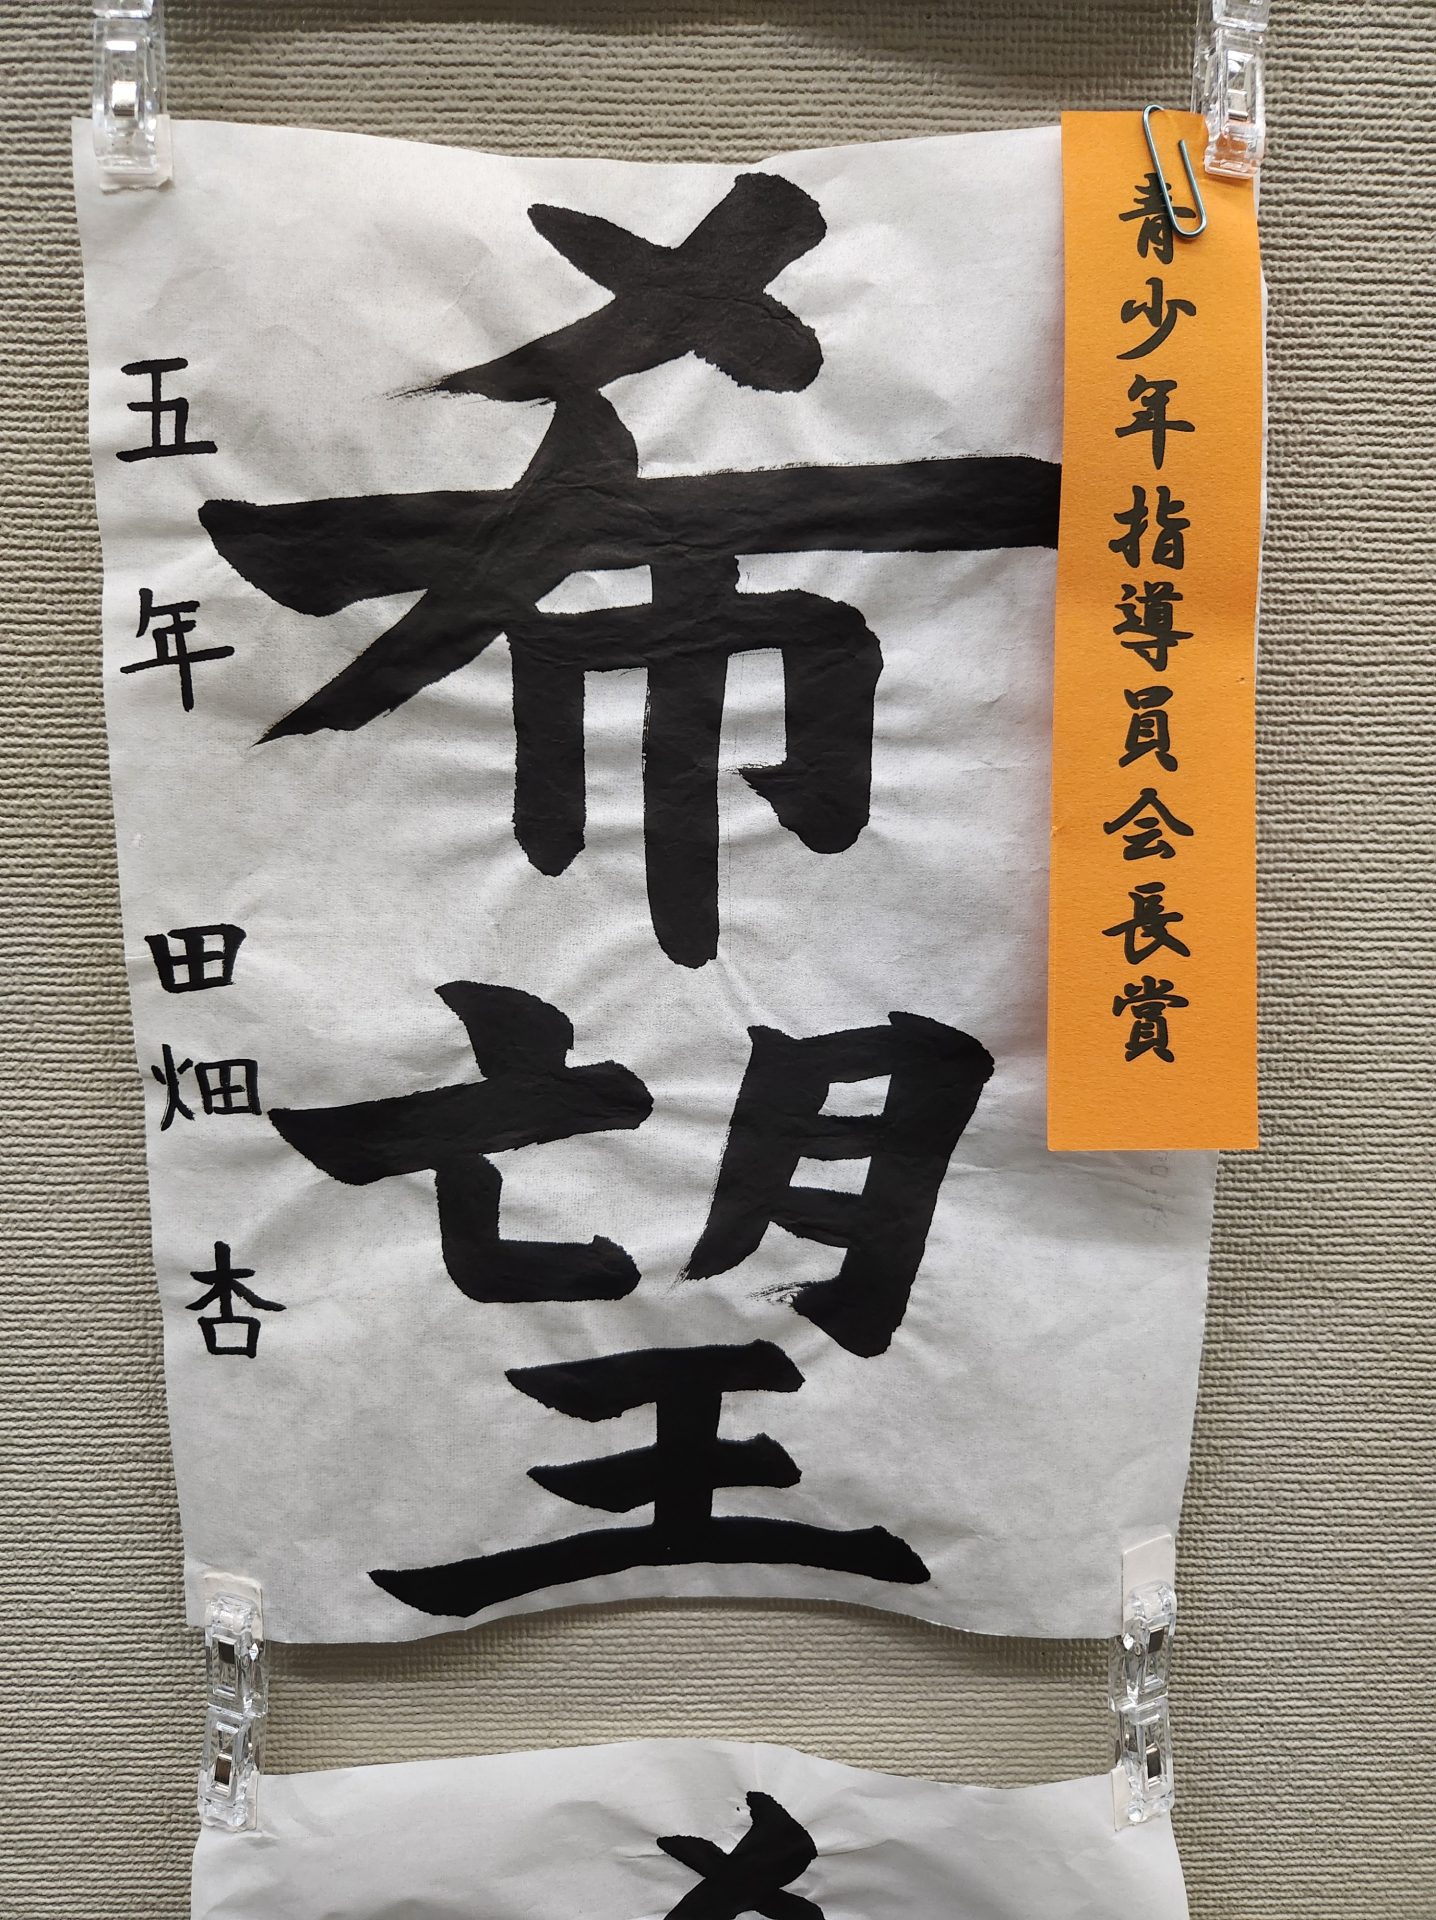 青少年指導員会長賞
希望
五年 田畑 杏